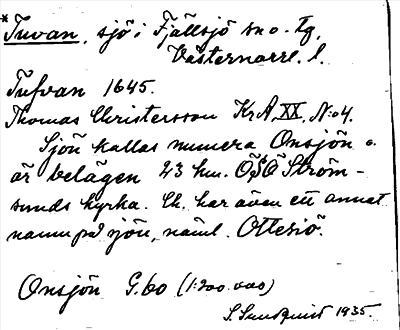 *Tuvan, sjö i Fjällsjö sn o. tg,
Västernorrl. l.
Tufvan 1645.
Thomas Christersson KrA, XX, N:o 4.
Sjön kallas numera Onsjön o.
är belägen 23 km. ÖSÖ Ström-
sunds kyrka. Ch. har även ett annat
namn på sjön, näml. Ottesiö.
Onsjön G.60 (1:200.000)
S. Sundquist 1935.